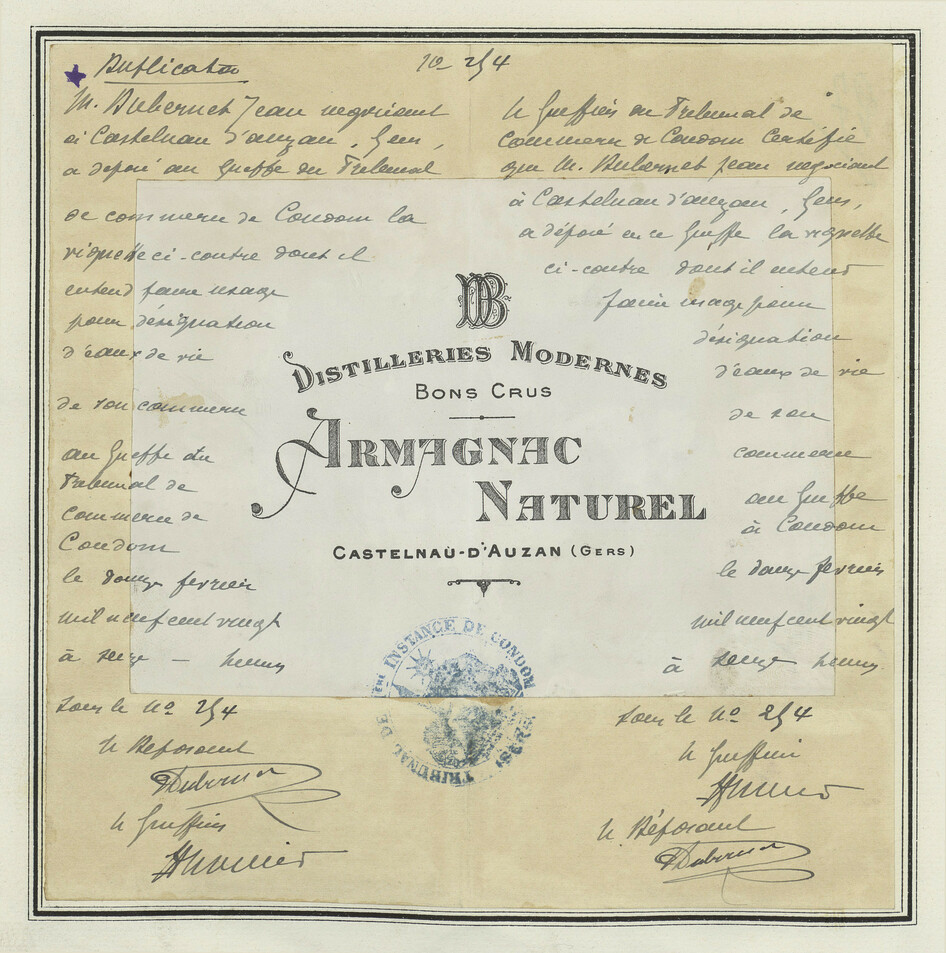 Duplicata
no 254
M. Dubernet Jean negociant
à Castelnau d'auzan, Gers,
a déposé au Greffe du Tribunal
de commerce de Condom la
vignette ci-contre dont il
entend faire usage
pour designation
d'eaux de vie
de son commerce
au Greffe du
Tribunal de
commerce de
Condom
le douze fevrier
mil neuf cent vingt
à seize - heures
sous le No 254
Le Déposant
Dubernet
Le Greffier
Le Greffier du Tribunal de
commerce de Condom Certifie
que M. Dubernet Jean negociant
à Castelnau d'auzan, Gers,
a déposé en ce Greffe la vignette
ci-contre dont il entend
faire usage pour
désignation
d'eaux de vie
de son
commerce
au Greffe
à Condom
le douze fevrier
mil neuf cent vingt
à seize heures
sous le No 254
Le Greffier
Le Déposant
Dubernet
DB
DISTILLERIES MODERNES
BONS CRUS
ARMAGNAC
NATUREL
CASTELNAU-D'AUZAN (GERS)
TRIBUNAL DE 1ÈRE INSTANCE DE CONDOM
(GERS)